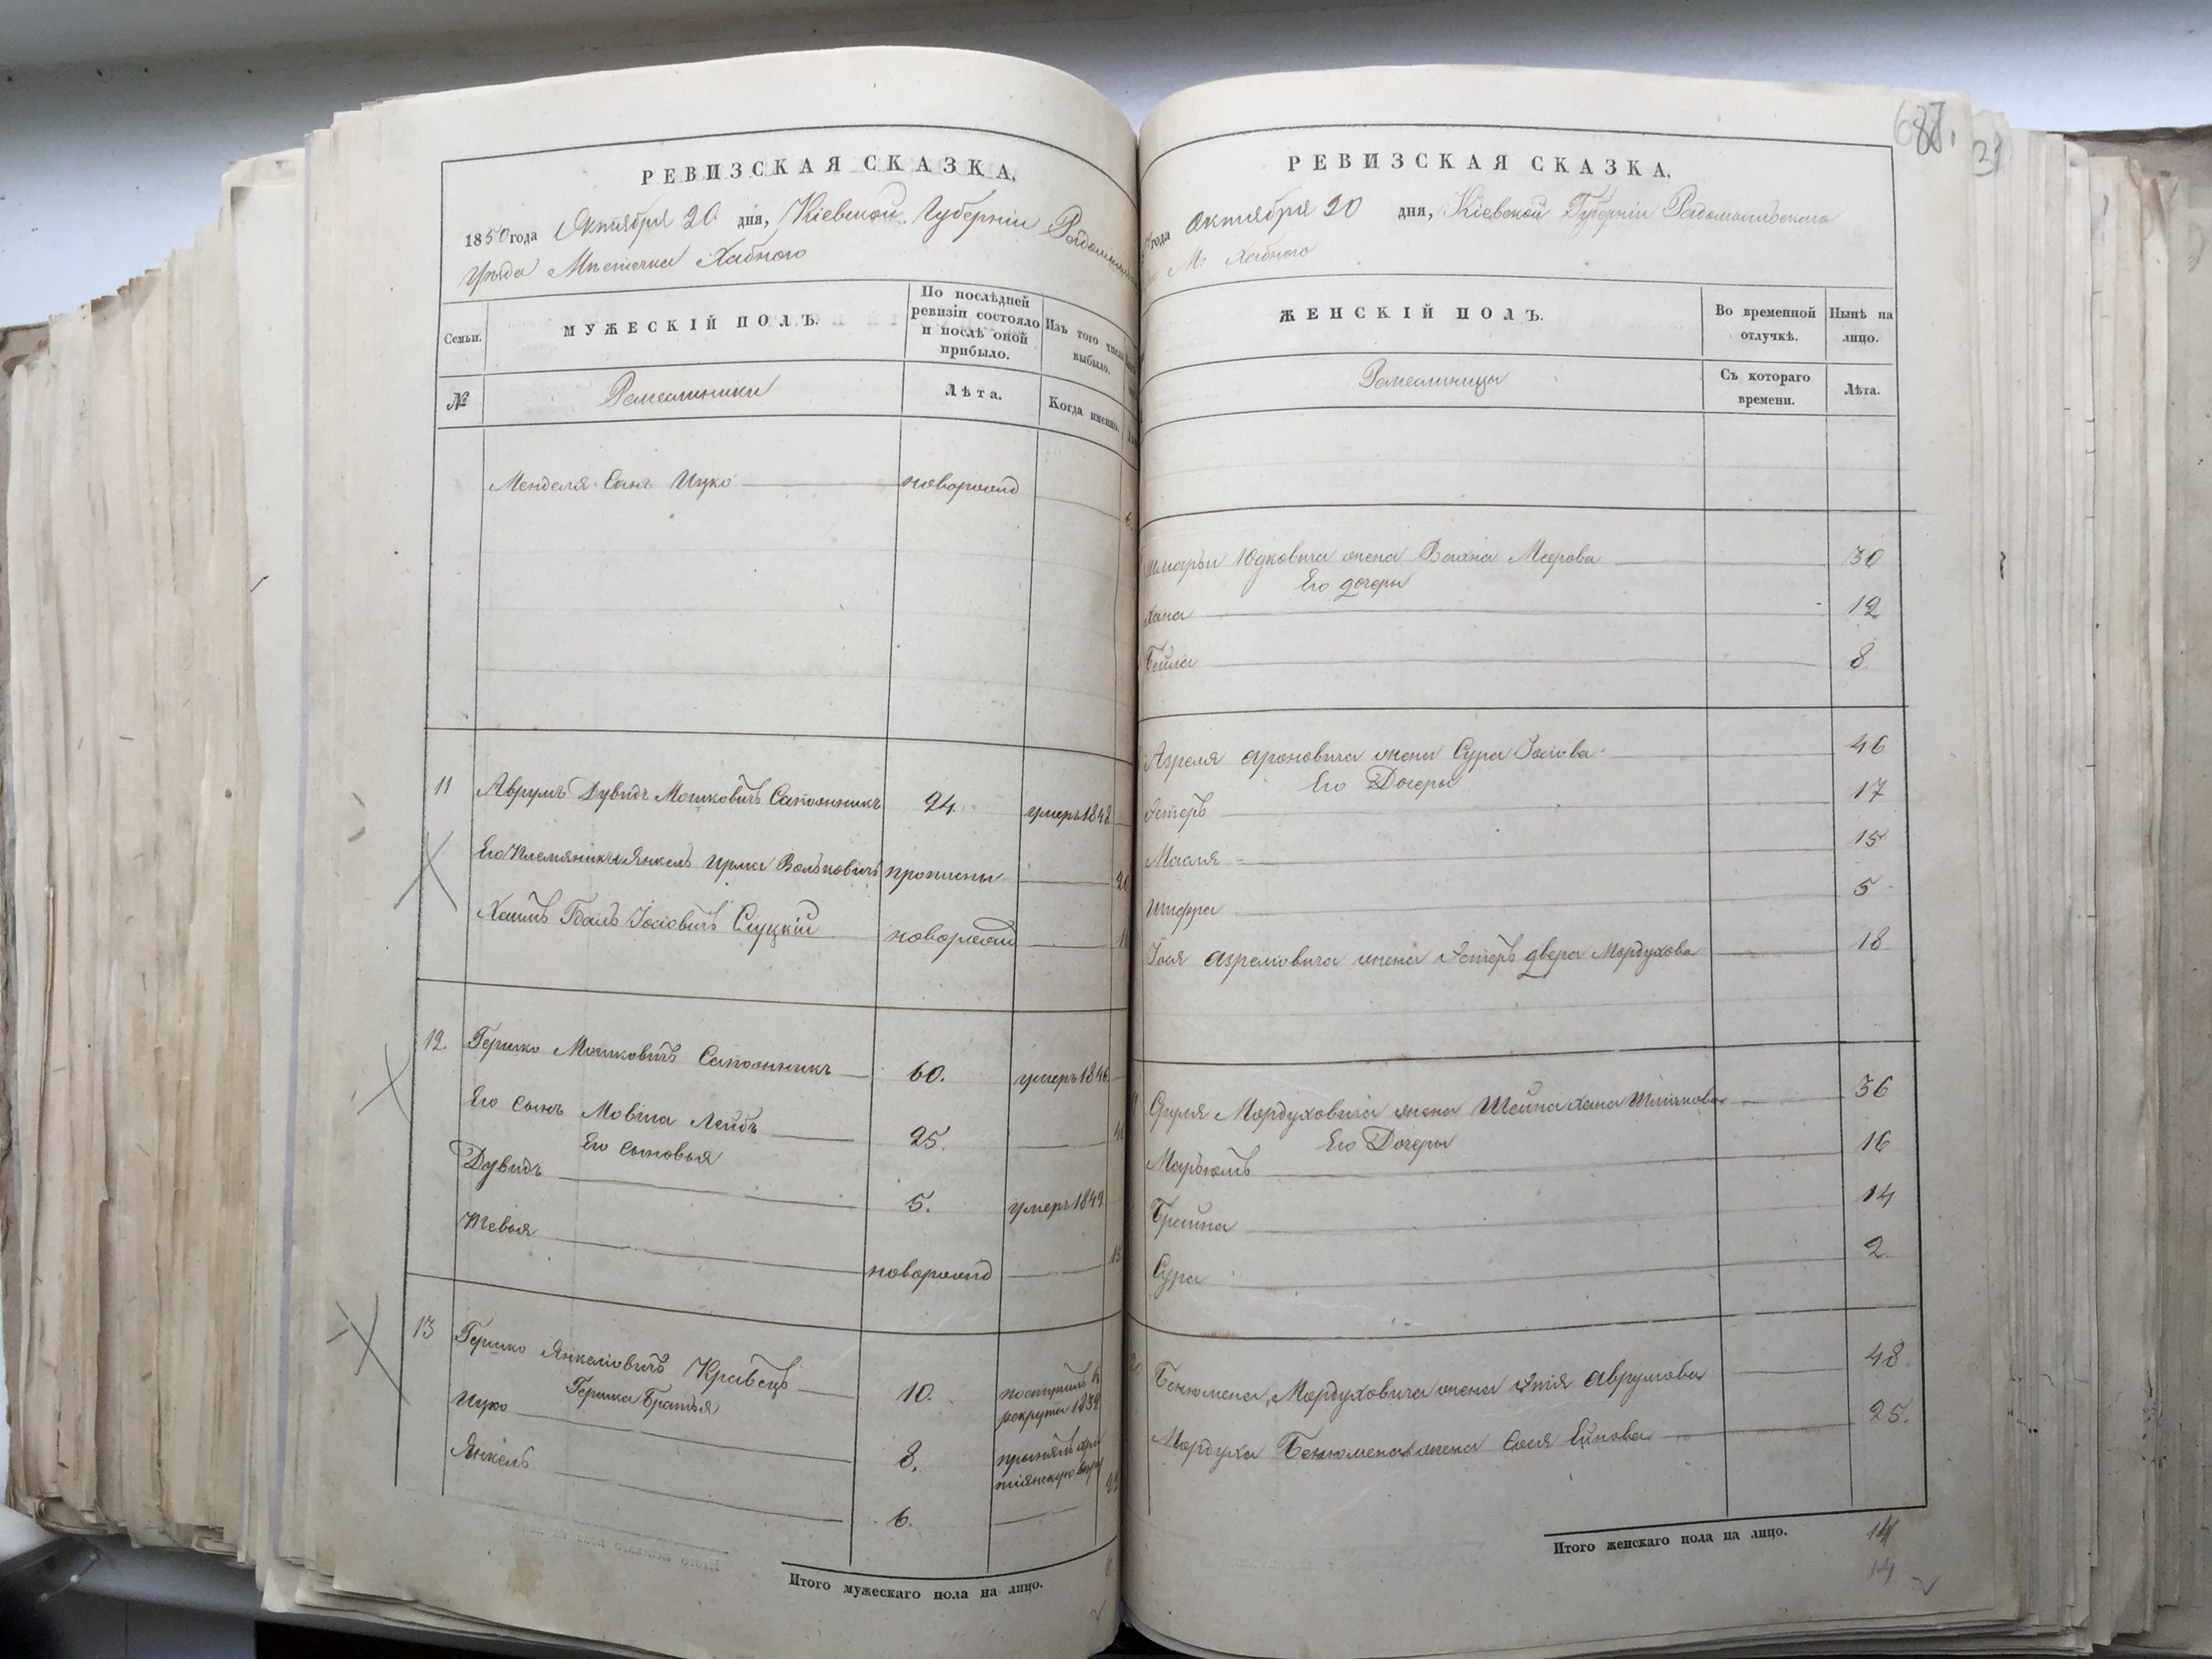 РЕВИЗСКАЯ СКАЗКА.
1850 года Октября 20 дня, Кіевской Губерніи
Уѣзда Мѣстечка Хабного
Семьи.
МУЖЕСКІЙ ПОЛЪ.
По послѣдней ревизіи состояло и послѣ оной прибыло.
Изъ того числа выбыло.
№
Ремесленники
Лѣта.
Когда именно.
Менделя Сынъ Ицко новорожд
11 Аврумъ Дувидъ Мошковичъ Сапожникъ 24. умеръ 1848
Его Племянники Янкель Ирма Вольковичъ прописны
Хаимъ Іосіовичъ Слуцкій новорожд
12. Гершко Мошковичъ Сапожникъ 60. умеръ 1846
Его сынъ Мовша Лейбъ 25.
Его сыновья
Дувидъ 5. умеръ 1849
Тевья новорожд
13 Гершко Янкеліовичъ Кравецъ 10. поступилъ в рекруты 1839
Гершка Братья
Ицко 8. принялъ хри
тіянскую веру
Янкель 6.
Итого мужескаго пола на лицо.
687.
31
РЕВИЗСКАЯ СКАЗКА.
года Октября 20 дня, Кіевской Губерніи Радомысльскаго
М. Хабного
ЖЕНСКІЙ ПОЛЪ.
Во временной отлучкѣ.
Нынѣ на лицо.
Ремеслницы
Съ котораго времени.
Лѣта.
Шмарьи Юдковича жена Меерова 30
Его дочери
Хана 12
Бейла 8.
Азреля Ароновича жена Сура Іосіова 46
Его Дочери
Эстеръ 17
Масля 15
Шифра 5
Іося Азреліовича жена Эстеръ двера Мордухова 18
Сруля Мордуховича жена Шейна Хана 36
Его Дочери
Марьямъ 16
Брайна 14
Сура 2
Бенюмена Мордуховича жена Аврумова 48
Мордуха Бенюмена жена Сося 25.
Итого женскаго пола на лицо. 14
14